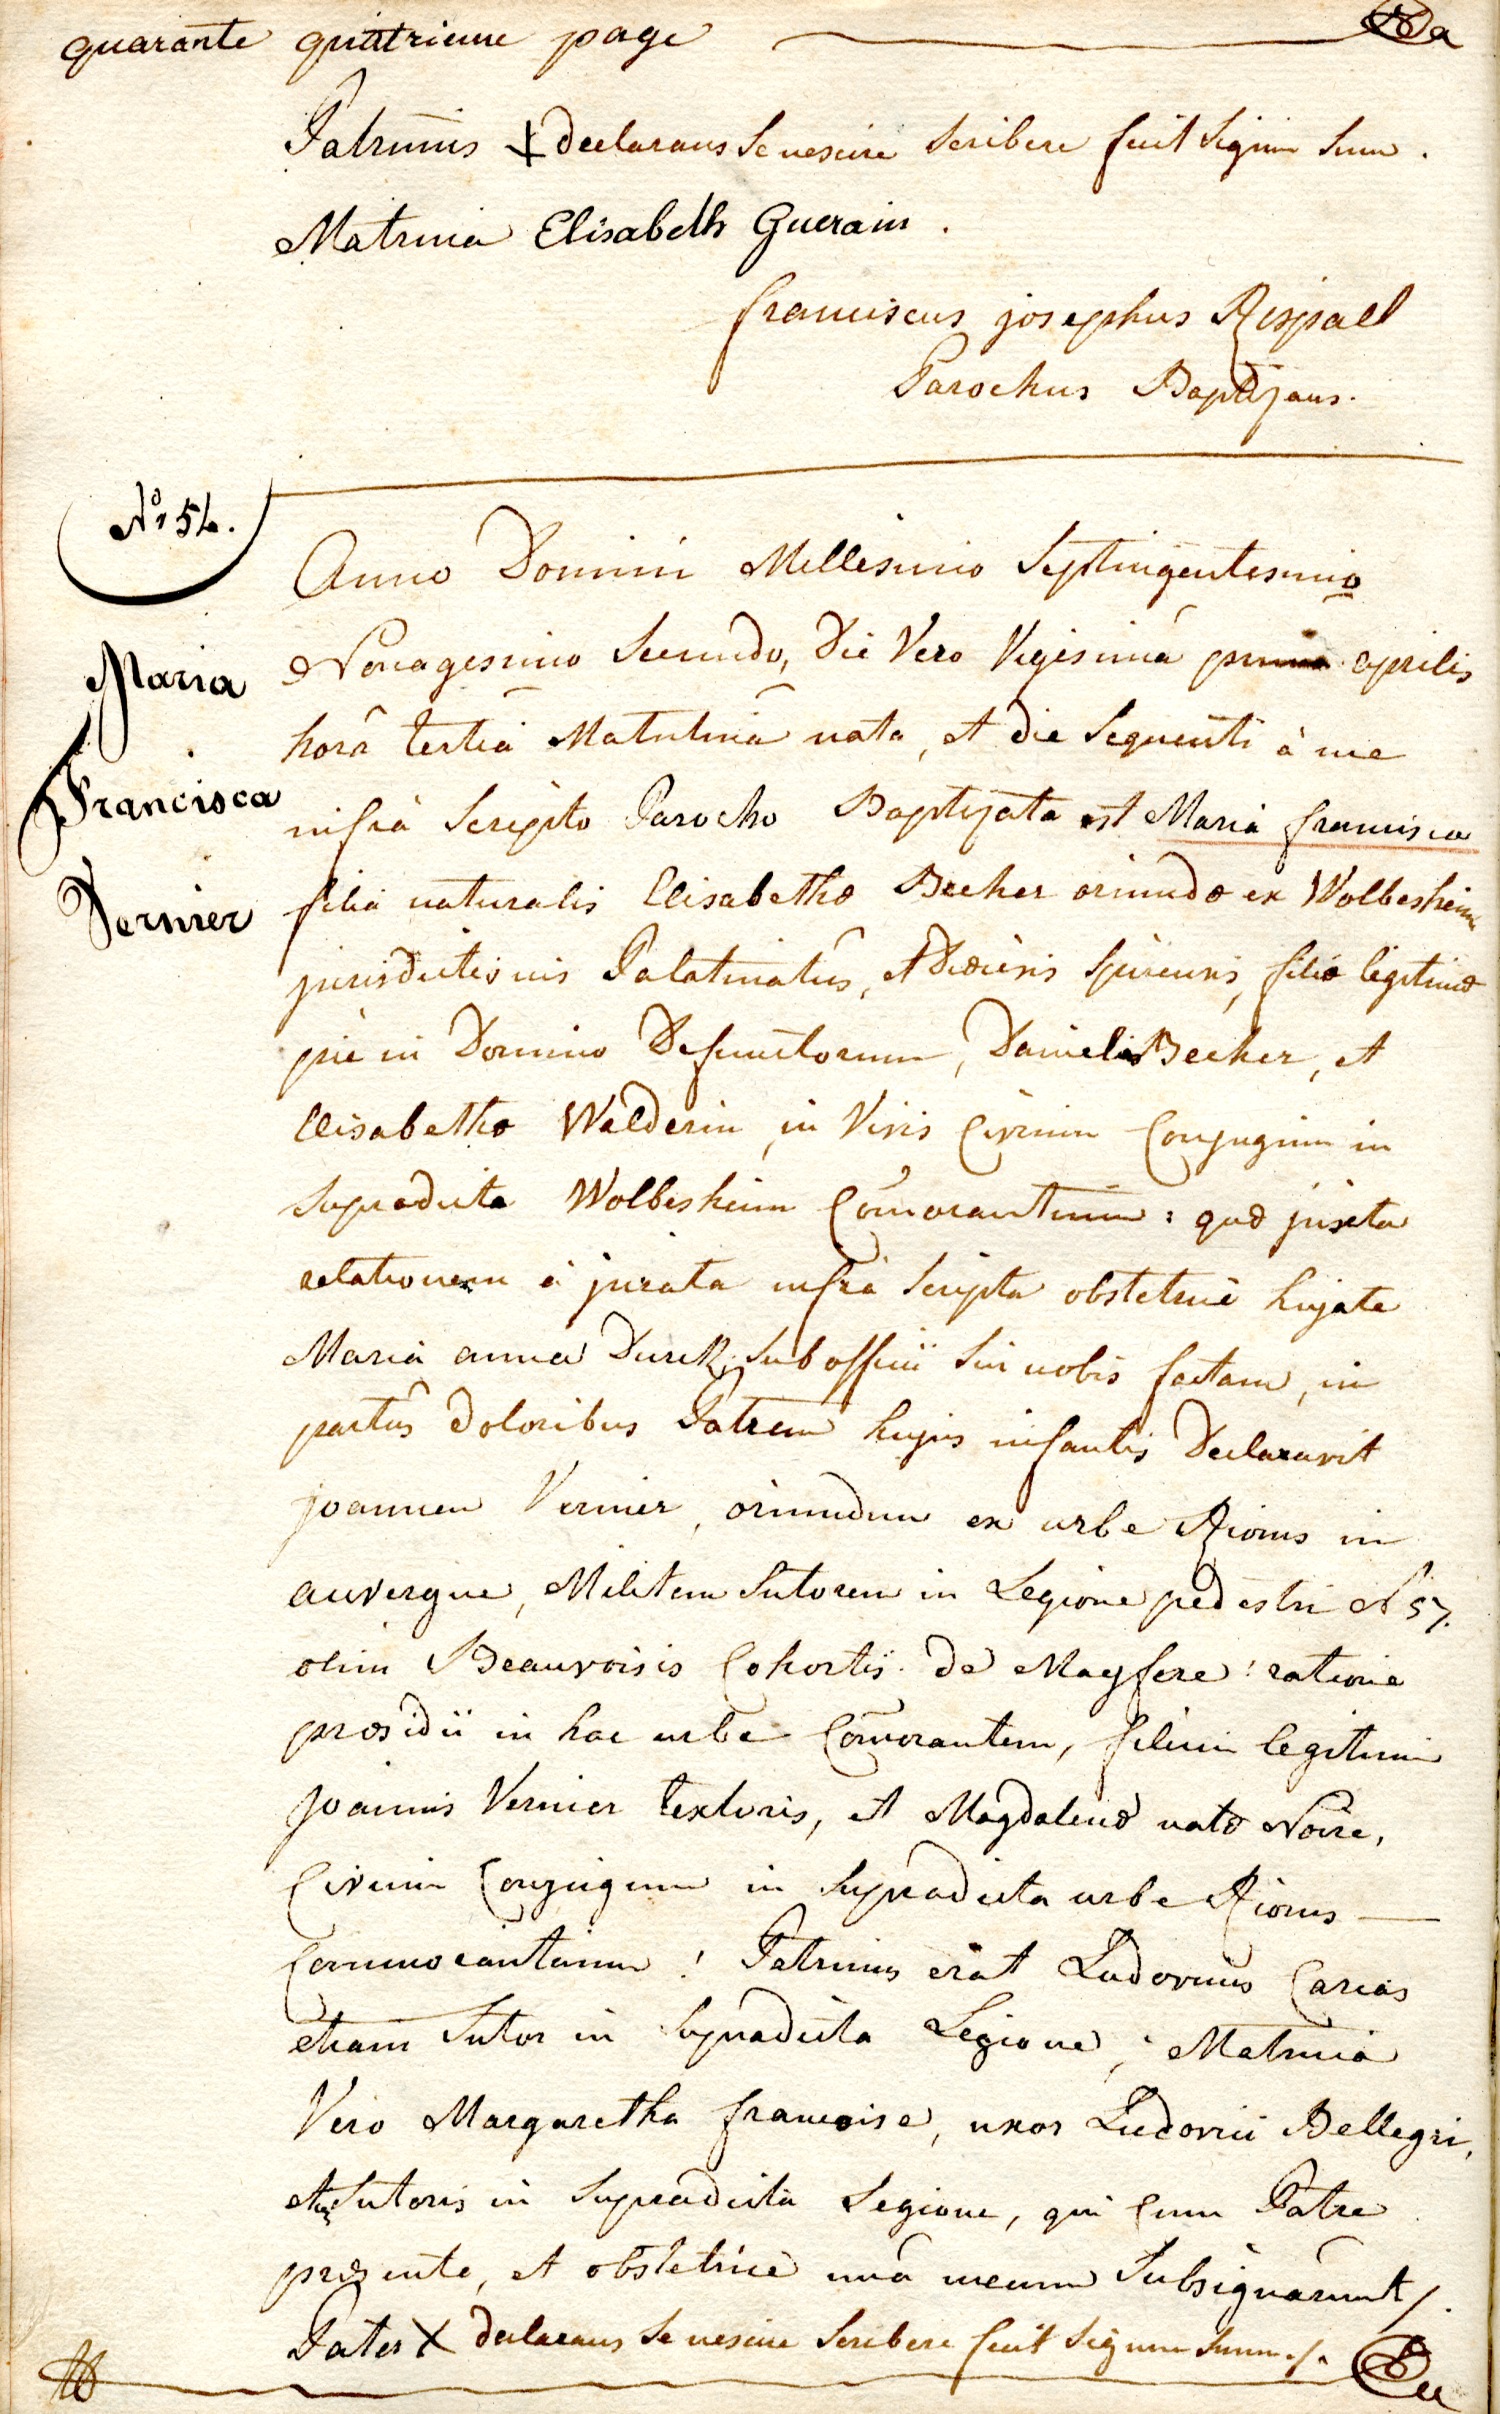 quarante quatrieme page
Patrinus + declarans se nescire scribere fecit signum suum.
Matrina Elisabeth Guerain.
franciscus josephus Rispall
Parochus Baptizans.
No 54.
Maria
Francisca
Vernier
Anno Domini Millesimo Septingentesimo
Nonagesimo Secundo, Die Vero Vigesimâ primâ aprilis
horâ tertiâ Matutinâ nata, et die Sequenti à me
infrà Scripto Parocho Baptizata est Maria francisca
filia naturalis Elisabethæ Becker oriundæ ex Wolbesheim
jurisdictionis Palatinatûs, et Diœcesis Spirensis, filiæ legitimæ
piè in Domino Defunctorum, Danielis Becker, et
Elisabethæ Walderin, in Vivis Civium Conjugum in
Supradicta Wolbesheim Comorantium: quæ juxta
relationem à jurata infrà Scripta obstetrice hujate
Maria anna Durck, Sub officii Sui nobis factam, in
partûs doloribus Patrem hujus infantis Declaravit
joannem Vernier, oriundum ex urbe Rioms in
auvergne, Militem Sutorem in Legione pedestri N 57.
olim Beauvoisis Cohortis de Mayfere: ratione
præsidii in hac urbe Comorantem, filium legitimum
joannis Vernier textoris, et Magdalenæ natæ Noire,
Civium Conjugum in Supradicta urbe Rioms
Commorantium! Patrinus erat Ludovicus Carias
etiam Sutor in Supradicta Legione; Matrina
Vero Margaretha francoise, uxor Ludovici Bellegri,
etiam Sutoris in Supradicta Legione, qui Cum Patre
præsente, et obstetrice unà mecum Subsignarunt/.
Pater X declarans Se nescire Scribere fecit Signum Suum./.